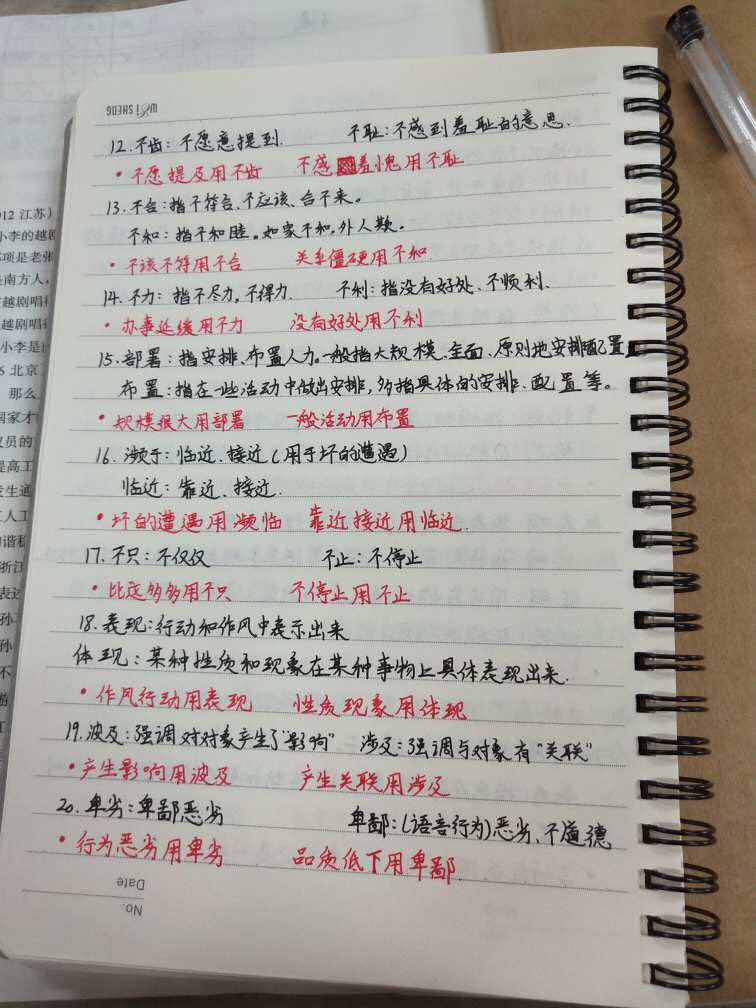 WEISHENG
12.不齿：不愿意提到. 不耻：不感到羞耻的意思.
·不愿提及用不齿 不感羞愧用不耻
13.不合：指不符合、不应该、合不来。
不和：指不和睦。如家不和，外人欺。
·不该不符用不合 关系僵硬用不和
14.不力：指不尽力，不得力. 不利：指没有好处、不顺利.
·办事延缓用不力 没有好处用不利
15.部署：指安排、布置人力。一般指大规模、全面、原则地安排配置
布置：指在一些活动中做出安排，多指具体的安排、配置等。
·规模很大用部署 一般活动用布置
16.濒于：临近、接近（用于坏的遭遇）
临近：靠近、接近.
·坏的遭遇用濒临 靠近接近用临近.
17.不只：不仅仅 不止：不停止
·比这多多用不只 不停止用不止
18.表现：行动和作风中表示出来
体现：某种性质和现象在某种事物上具体表现出来.
·作风行动用表现 性质现象用体现
19.波及：强调对对象产生了"影响" 涉及：强调与对象有"关联"
·产生影响用波及 产生关联用涉及
20.卑劣：卑鄙恶劣 卑鄙：（语言行为）恶劣、不道德
·行为恶劣用卑劣 品质低下用卑鄙
Date
No.
12 江苏）
小李的越剧
项是老张
是南方人，
越剧唱
越剧唱
小李是
6 北京
那么
国家才
议员的
是高工
发生
工人工
和谐
浙江
表达
孙
孙
不